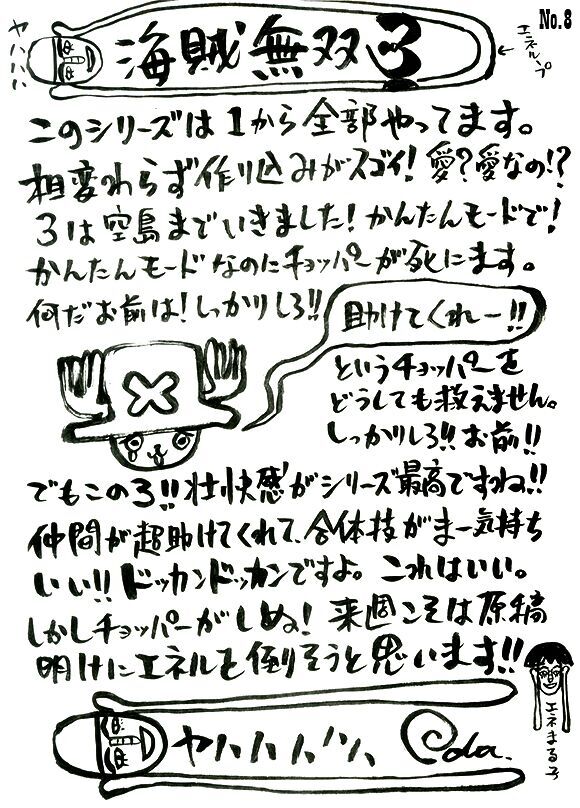 No.8
ヤハハハ
海賊無双3
←エネループ
このシリーズは1から全部やってます。
相変わらず作り込みがスゴイ!愛?愛なの!?
3は空島までいきました!かんたんモードで!
かんたんモードなのにチョッパーが死にます。
何だお前は!しっかりしろ!!
助けてくれー!!
というチョッパーを
どうしても救えません。
しっかりしろ!!お前!!
でもこの3!!壮快感がシリーズ最高ですね!!
仲間が超助けてくれて、合体技がまー気持ち
いい!!ドッカンドッカンですよ。これはいい。
しかしチョッパーがしぬ!来週こそは原稿
明けにエネルを倒そうと思います!!
エネまる子
ヤハハハハハ
Oda.